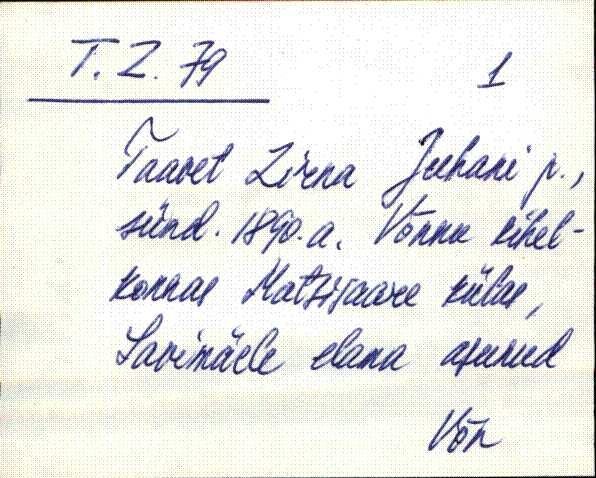 T. Z. 79
1
Taavet Zirna Juhani p.,
sünd. 1890.a. Võnnu kihel-
konnas Matsisaare külas,
Savimäele elama asunud
Võn